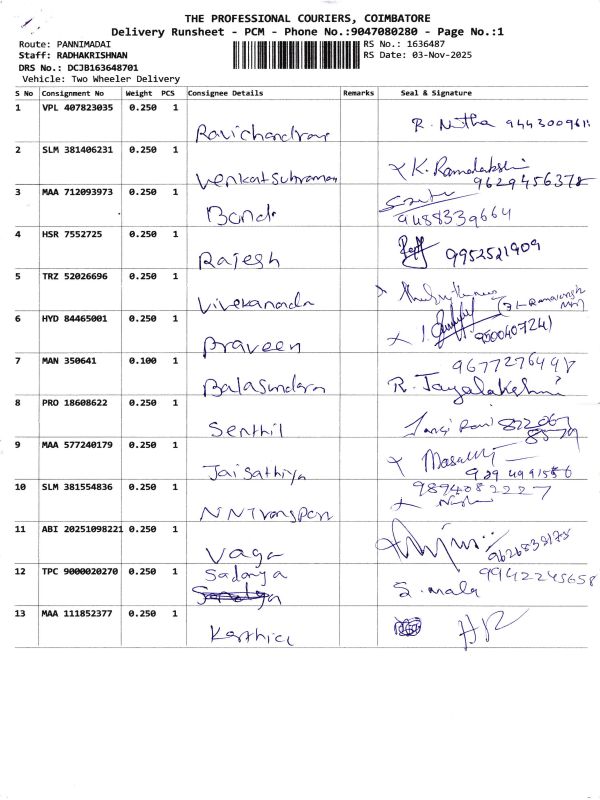 THE PROFESSIONAL COURIERS, COIMBATORE
Delivery Runsheet - PCM - Phone No.:9047080280 - Page No.:1
Route: PANNIMADAI RS No.: 1636487
Staff: RADHAKRISHNAN RS Date: 03-Nov-2025
DRS No.: DCJB163648701
Vehicle: Two Wheeler Delivery
S No Consignment No Weight PCS Consignee Details Remarks Seal & Signature
1 VPL 407823035 0.250 1
Ravichandran R. Nitha
2 SLM 381406231 0.250 1
Venkatsubraman K. Ramalakshi
9629456378
3 MAA 712093973 0.250 1
9488339664
4 HSR 7552725 0.250 1
Rajesh 9952521909
5 TRZ 52026696 0.250 1
Vivekanada
6 HYD 84465001 0.250 1
Praveen 9500407241
7 MAN 350641 0.100 1
Balasundara R. Jayalakshmi
8 PRO 18608622 0.250 1
Senthil
9 MAA 577240179 0.250 1
Jaisathiya
10 SLM 381554836 0.250 1
9894082227
11 ABI 20251098221 0.250 1
Vaga 9626838175
12 TPC 9000020270 0.250 1
Sadanya S. mala
9942245658
13 MAA 111852377 0.250 1
Karthick